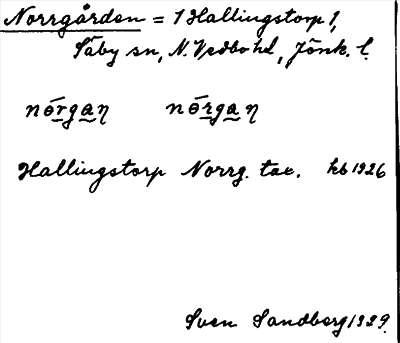 Norrgården = 1 Hallingstorp 1,
Säby sn, N. Vedbo hd, Jönk. l.
nórgaη nórgaη
Hallingstorp Norrg. tax. hb 1926
Sven Sandberg 1929.